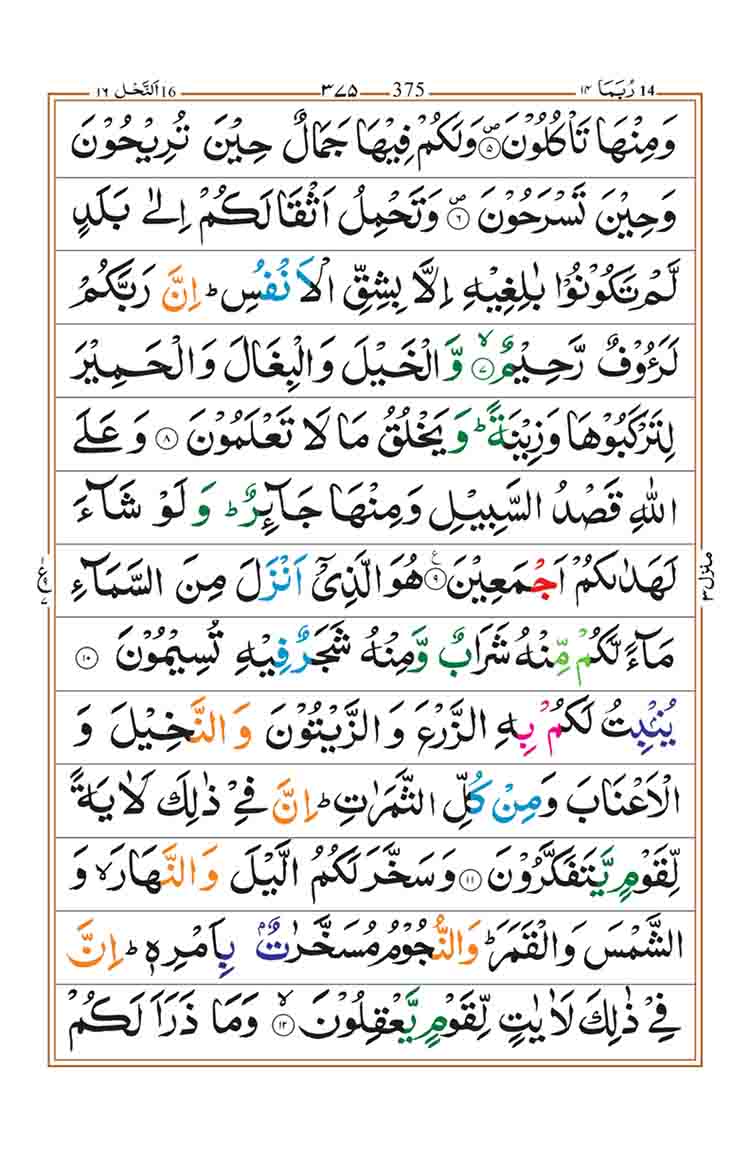 14 رُبَمَا ١٤ 375 ٣٧٥ 16 اَلنَّحْل ١٦
وَمِنْهَا تَاْكُلُوْنَ ۪﴿۵﴾ وَلَكُمْ فِيْهَا جَمَالٌ حِيْنَ تُرِيْحُوْنَ
وَحِيْنَ تَسْرَحُوْنَ ۪﴿۶﴾ وَتَحْمِلُ اَثْقَالَكُمْ اِلٰى بَلَدٍ
لَّمْ تَكُوْنُوْا بٰلِغِيْهِ اِلَّا بِشِقِّ الْاَنْفُسِ ؕ اِنَّ رَبَّكُمْ
لَرَءُوْفٌ رَّحِيْمٌ ۙ﴿۷﴾ وَّالْخَيْلَ وَالْبِغَالَ وَالْحَمِيْرَ
لِتَرْكَبُوْهَا وَزِيْنَةً ؕ وَيَخْلُقُ مَا لَا تَعْلَمُوْنَ ﴿۸﴾ وَعَلَى
اللّٰهِ قَصْدُ السَّبِيْلِ وَمِنْهَا جَآئِرٌ ؕ وَلَوْ شَآءَ
لَهَدٰىكُمْ اَجْمَعِيْنَ ﴿۹﴾ۧ هُوَ الَّذِىْۤ اَنْزَلَ مِنَ السَّمَآءِ
مَآءً لَّكُمْ مِّنْهُ شَرَابٌ وَّمِنْهُ شَجَرٌ فِيْهِ تُسِيْمُوْنَ ﴿۱۰﴾
يُنْۢبِتُ لَكُمْ بِهِ الزَّرْعَ وَالزَّيْتُوْنَ وَالنَّخِيْلَ وَ
الْاَعْنَابَ وَمِنْ كُلِّ الثَّمَرٰتِ ؕ اِنَّ فِىْ ذٰلِكَ لَاٰيَةً
لِّقَوْمٍ يَّتَفَكَّرُوْنَ ﴿۱۱﴾ وَسَخَّرَ لَكُمُ الَّيْلَ وَالنَّهَارَ ۙ وَ
الشَّمْسَ وَالْقَمَرَ ؕ وَالنُّجُوْمُ مُسَخَّرٰتٌۢ بِاَمْرِهٖ ؕ اِنَّ
فِىْ ذٰلِكَ لَاٰيٰتٍ لِّقَوْمٍ يَّعْقِلُوْنَ ۙ﴿۱۲﴾ وَمَا ذَرَاَ لَكُمْ
منزل ٣